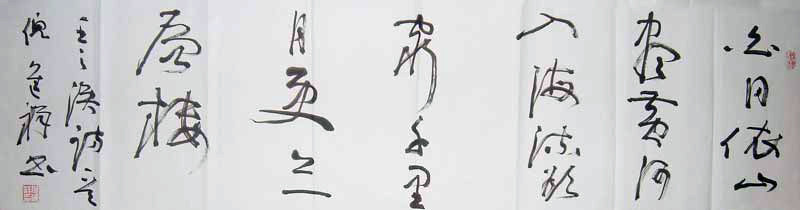 白日依山
尽黄河
入海流欲
穷千里
目更上一
层楼
王之涣诗意
倪 书